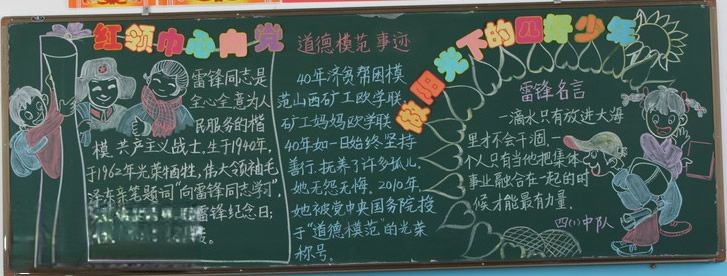 红领巾心向党
雷锋同志是
全心全意为人
民服务的楷
模、共产主义战士,生于1940年,
于1962年光荣牺牲,伟大领袖毛
泽东亲笔题词“向雷锋同志学习”,
雷锋纪念日;
道德模范事迹
40年济贫帮困模
范山西矿工欧学联,
矿工妈妈欧学联
40年如一日始终坚持
善行,抚养了许多孤儿,
她无怨无悔。2010年,
她被党中央国务院授
于“道德模范”的光荣
称号。
阳光下的四好少年
雷锋名言
一滴水只有放进大海
里才不会干涸,一
个人只有当他把集体
事业融合在一起的时
候才能最有力量.
四(1)中队